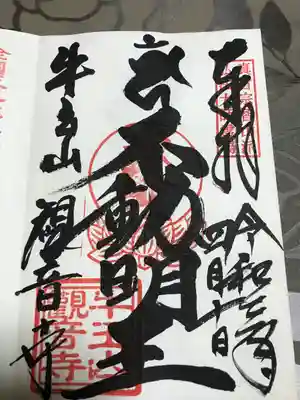 奉拝
令和三年
四月十日
不動明王
牛玉山
観音寺
牛玉山
觀音寺